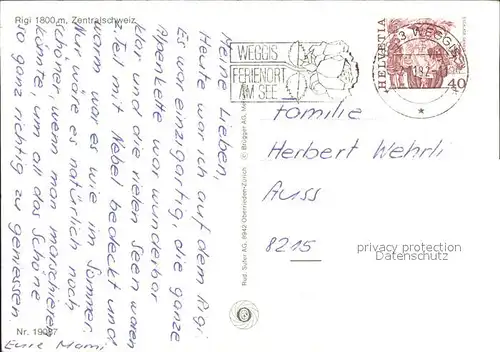 Rigi 1800 m, Zentralschweiz
Meine Lieben,
Heute war ich auf dem Rigi
Es war einzigartig, die ganze
Alpenkette war wunderbar
klar und die vielen Seen waren
z. Teil mit Nebel bedeckt und
warm war es wie im Sommer.
Nur wäre es natürlich noch
schöner, wenn man marschieren
könnte, um all das Schöne
so ganz richtig zu geniessen.
Eure Mami
Nr. 19087
Rud. Suter AG, 8942 Oberrieden-Zürich © Brügger AG,
WEGGIS
FERIENORT
AM SEE
WEGGIS
HELVETIA
40
Familie
Herbert Wehrli
8215
privacy protection
Datenschutz